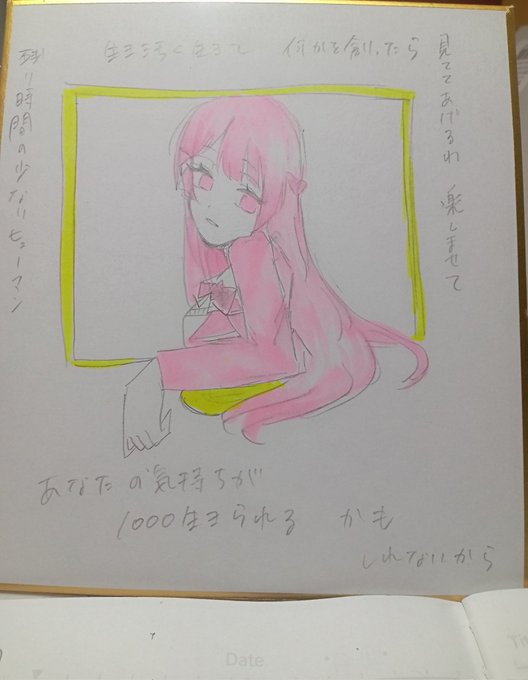 生き汚く生きて　何かを創ったら
見ててあげるわ　楽しませて
残り時間の少ないヒューマン
あなたの気持ちが
1000生きられる　かも
しれないから
Date